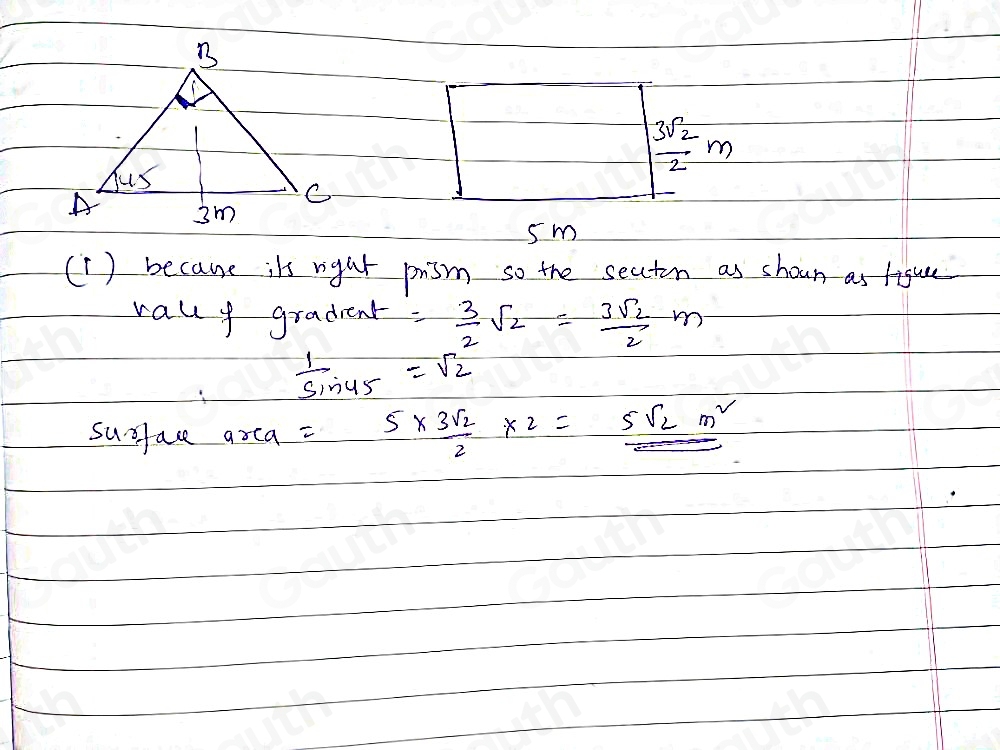 B
A
45
C
3m
3√2/2 m
5 m
(i) because its right prism so the section as shown as figure
value of gradient = 3/2 √2 = 3√2/2 m
1/sin45 = √2
surface area = 5 × 3√2/2 × 2 = 5√2 m²
Gauth